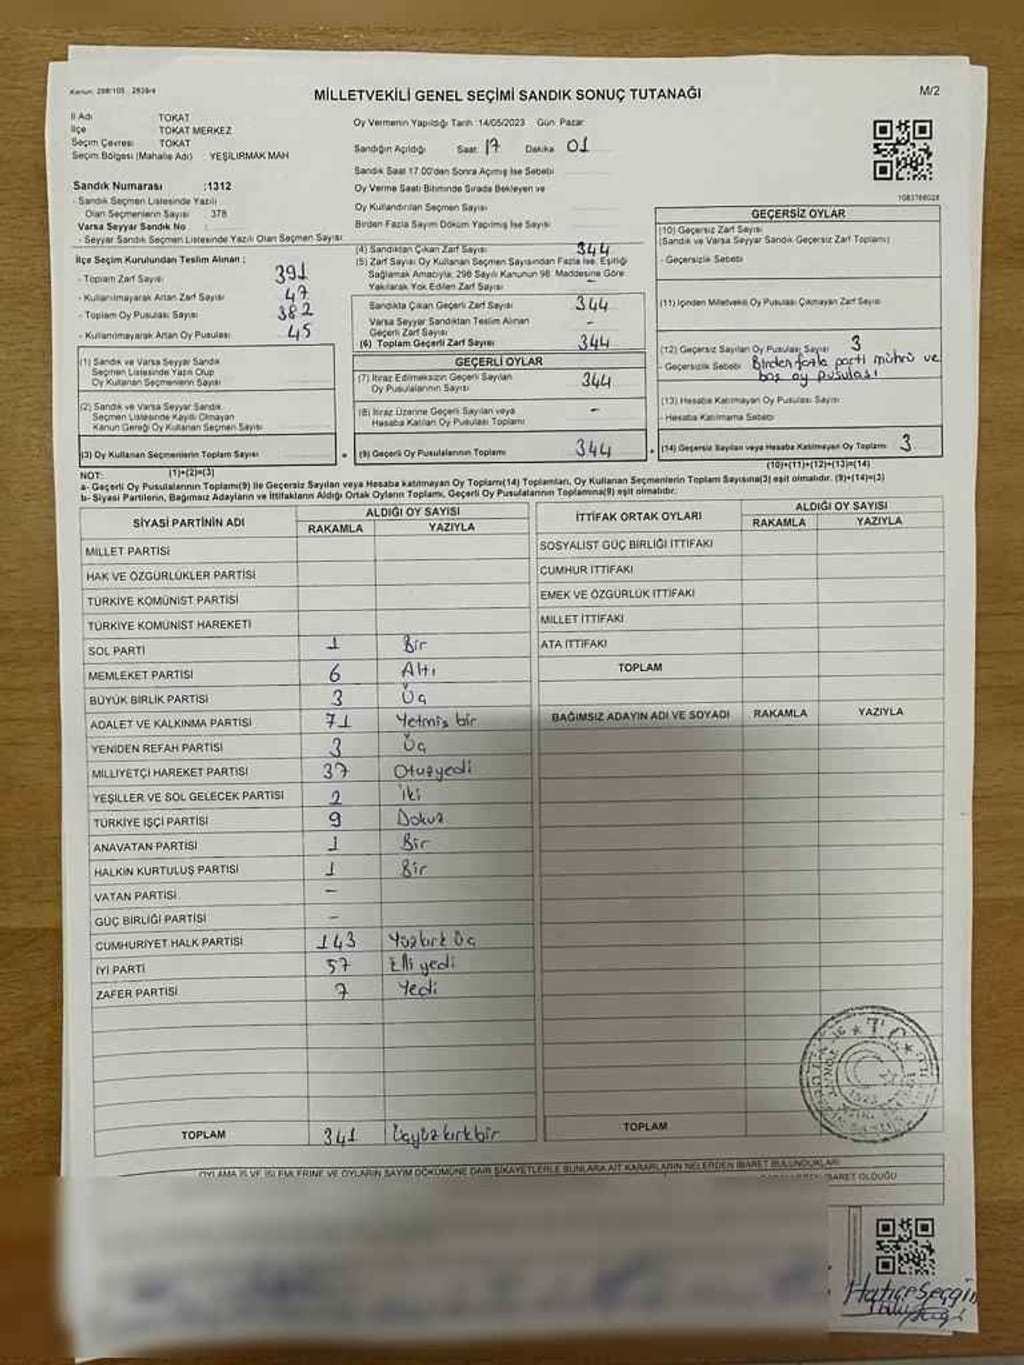 Kanun: 298/105 2839/4
MİLLETVEKİLİ GENEL SEÇİMİ SANDIK SONUÇ TUTANAĞI
M/2
İl Adı TOKAT
İlçe TOKAT MERKEZ
Seçim Çevresi TOKAT
Seçim Bölgesi (Mahalle Adı) YEŞİLIRMAK MAH
Sandık Numarası :1312
- Sandık Seçmen Listesinde Yazılı
Olan Seçmenlerin Sayısı : 378
Varsa Seyyar Sandık No
- Seyyar Sandık Seçmen Listesinde Yazılı Olan Seçmen Sayısı
Oy Vermenin Yapıldığı Tarih :14/05/2023 Gün Pazar
Sandığın Açıldığı Saat 17 Dakika 01
Sandık Saat 17.00'den Sonra Açılmış İse Sebebi
Oy Verme Saati Bitiminde Sırada Bekleyen ve
Oy Kullandırılan Seçmen Sayısı
Birden Fazla Sayım Döküm Yapılmış İse Sayısı
1083766028
İlçe Seçim Kurulundan Teslim Alınan ;
- Toplam Zarf Sayısı 391
- Kullanılmayarak Artan Zarf Sayısı 47
- Toplam Oy Pusulası Sayısı 382
- Kullanılmayarak Artan Oy Pusulası 45
(1) Sandık ve Varsa Seyyar Sandık
Seçmen Listesinde Yazılı Olup
Oy Kullanan Seçmenlerin Sayısı
(2) Sandık ve Varsa Seyyar Sandık
Seçmen Listesinde Kayıtlı Olmayan
Kanun Gereği Oy Kullanan Seçmen Sayısı
(3) Oy Kullanan Seçmenlerin Toplam Sayısı
(1)+(2)=(3)
(4) Sandıktan Çıkan Zarf Sayısı 344
(5) Zarf Sayısı Oy Kullanan Seçmen Sayısından Fazla İse, Eşitliği
Sağlamak Amacıyla, 298 Sayılı Kanunun 98. Maddesine Göre
Yakılarak Yok Edilen Zarf Sayısı -
Sandıkta Çıkan Geçerli Zarf Sayısı 344
Varsa Seyyar Sandıktan Teslim Alınan
Geçerli Zarf Sayısı -
(6) Toplam Geçerli Zarf Sayısı 344
GEÇERLİ OYLAR
(7) İtiraz Edilmeksizin Geçerli Sayılan
Oy Pusulalarının Sayısı 344
(8) İtiraz Üzerine Geçerli Sayılan veya
Hesaba Katılan Oy Pusulası Toplamı -
(9) Geçerli Oy Pusulalarının Toplamı 344
GEÇERSİZ OYLAR
(10) Geçersiz Zarf Sayısı
(Sandık ve Varsa Seyyar Sandık Geçersiz Zarf Toplamı)
- Geçersizlik Sebebi
(11) İçinden Milletvekili Oy Pusulası Çıkmayan Zarf Sayısı
(12) Geçersiz Sayılan Oy Pusulası Sayısı 3
- Geçersizlik Sebebi Birden fazla parti mührü ve
boş oy pusulası
(13) Hesaba Katılmayan Oy Pusulası Sayısı
- Hesaba Katılmama Sebebi
(14) Geçersiz Sayılan veya Hesaba Katılmayan Oy Toplamı 3
(10)+(11)+(12)+(13)=(14)
NOT:
a- Geçerli Oy Pusulalarının Toplamı(9) ile Geçersiz Sayılan veya Hesaba katılmayan Oy Toplamı(14) Toplamları, Oy Kullanan Seçmenlerin Toplam Sayısına(3) eşit olmalıdır. (9)+(14)=(3)
b- Siyasi Partilerin, Bağımsız Adayların ve İttifakların Aldığı Ortak Oyların Toplamı, Geçerli Oy Pusulalarının Toplamına(9) eşit olmalıdır.
SİYASİ PARTİNİN ADI ALDIĞI OY SAYISI
RAKAMLA YAZIYLA
MİLLET PARTİSİ
HAK VE ÖZGÜRLÜKLER PARTİSİ
TÜRKİYE KOMÜNİST PARTİSİ
TÜRKİYE KOMÜNİST HAREKETİ
SOL PARTİ 1 Bir
MEMLEKET PARTİSİ 6 Altı
BÜYÜK BİRLİK PARTİSİ 3 Üç
ADALET VE KALKINMA PARTİSİ 71 Yetmiş bir
YENİDEN REFAH PARTİSİ 3 Üç
MİLLİYETÇİ HAREKET PARTİSİ 37 Otuzyedi
YEŞİLLER VE SOL GELECEK PARTİSİ 2 İki
TÜRKİYE İŞÇİ PARTİSİ 9 Dokuz
ANAVATAN PARTİSİ 1 Bir
HALKIN KURTULUŞ PARTİSİ 1 Bir
VATAN PARTİSİ -
GÜÇ BİRLİĞİ PARTİSİ -
CUMHURİYET HALK PARTİSİ 143 Yüzkırk üç
İYİ PARTİ 57 Elli yedi
ZAFER PARTİSİ 7 Yedi
TOPLAM 341 Üçyüzkırkbir
İTTİFAK ORTAK OYLARI ALDIĞI OY SAYISI
RAKAMLA YAZIYLA
SOSYALİST GÜÇ BİRLİĞİ İTTİFAKI
CUMHUR İTTİFAKI
EMEK VE ÖZGÜRLÜK İTTİFAKI
MİLLET İTTİFAKI
ATA İTTİFAKI
TOPLAM
BAĞIMSIZ ADAYIN ADI VE SOYADI RAKAMLA YAZIYLA
TOPLAM
OYLAMA İŞ VE İŞLEMLERİNE VE OYLARIN SAYIM DÖKÜMÜNE DAİR ŞİKAYETLERLE BUNLARA AİT KARARLARIN NELERDEN İBARET BULUNDUKLARI
İBARET OLDUĞU
Hatice Seçgin